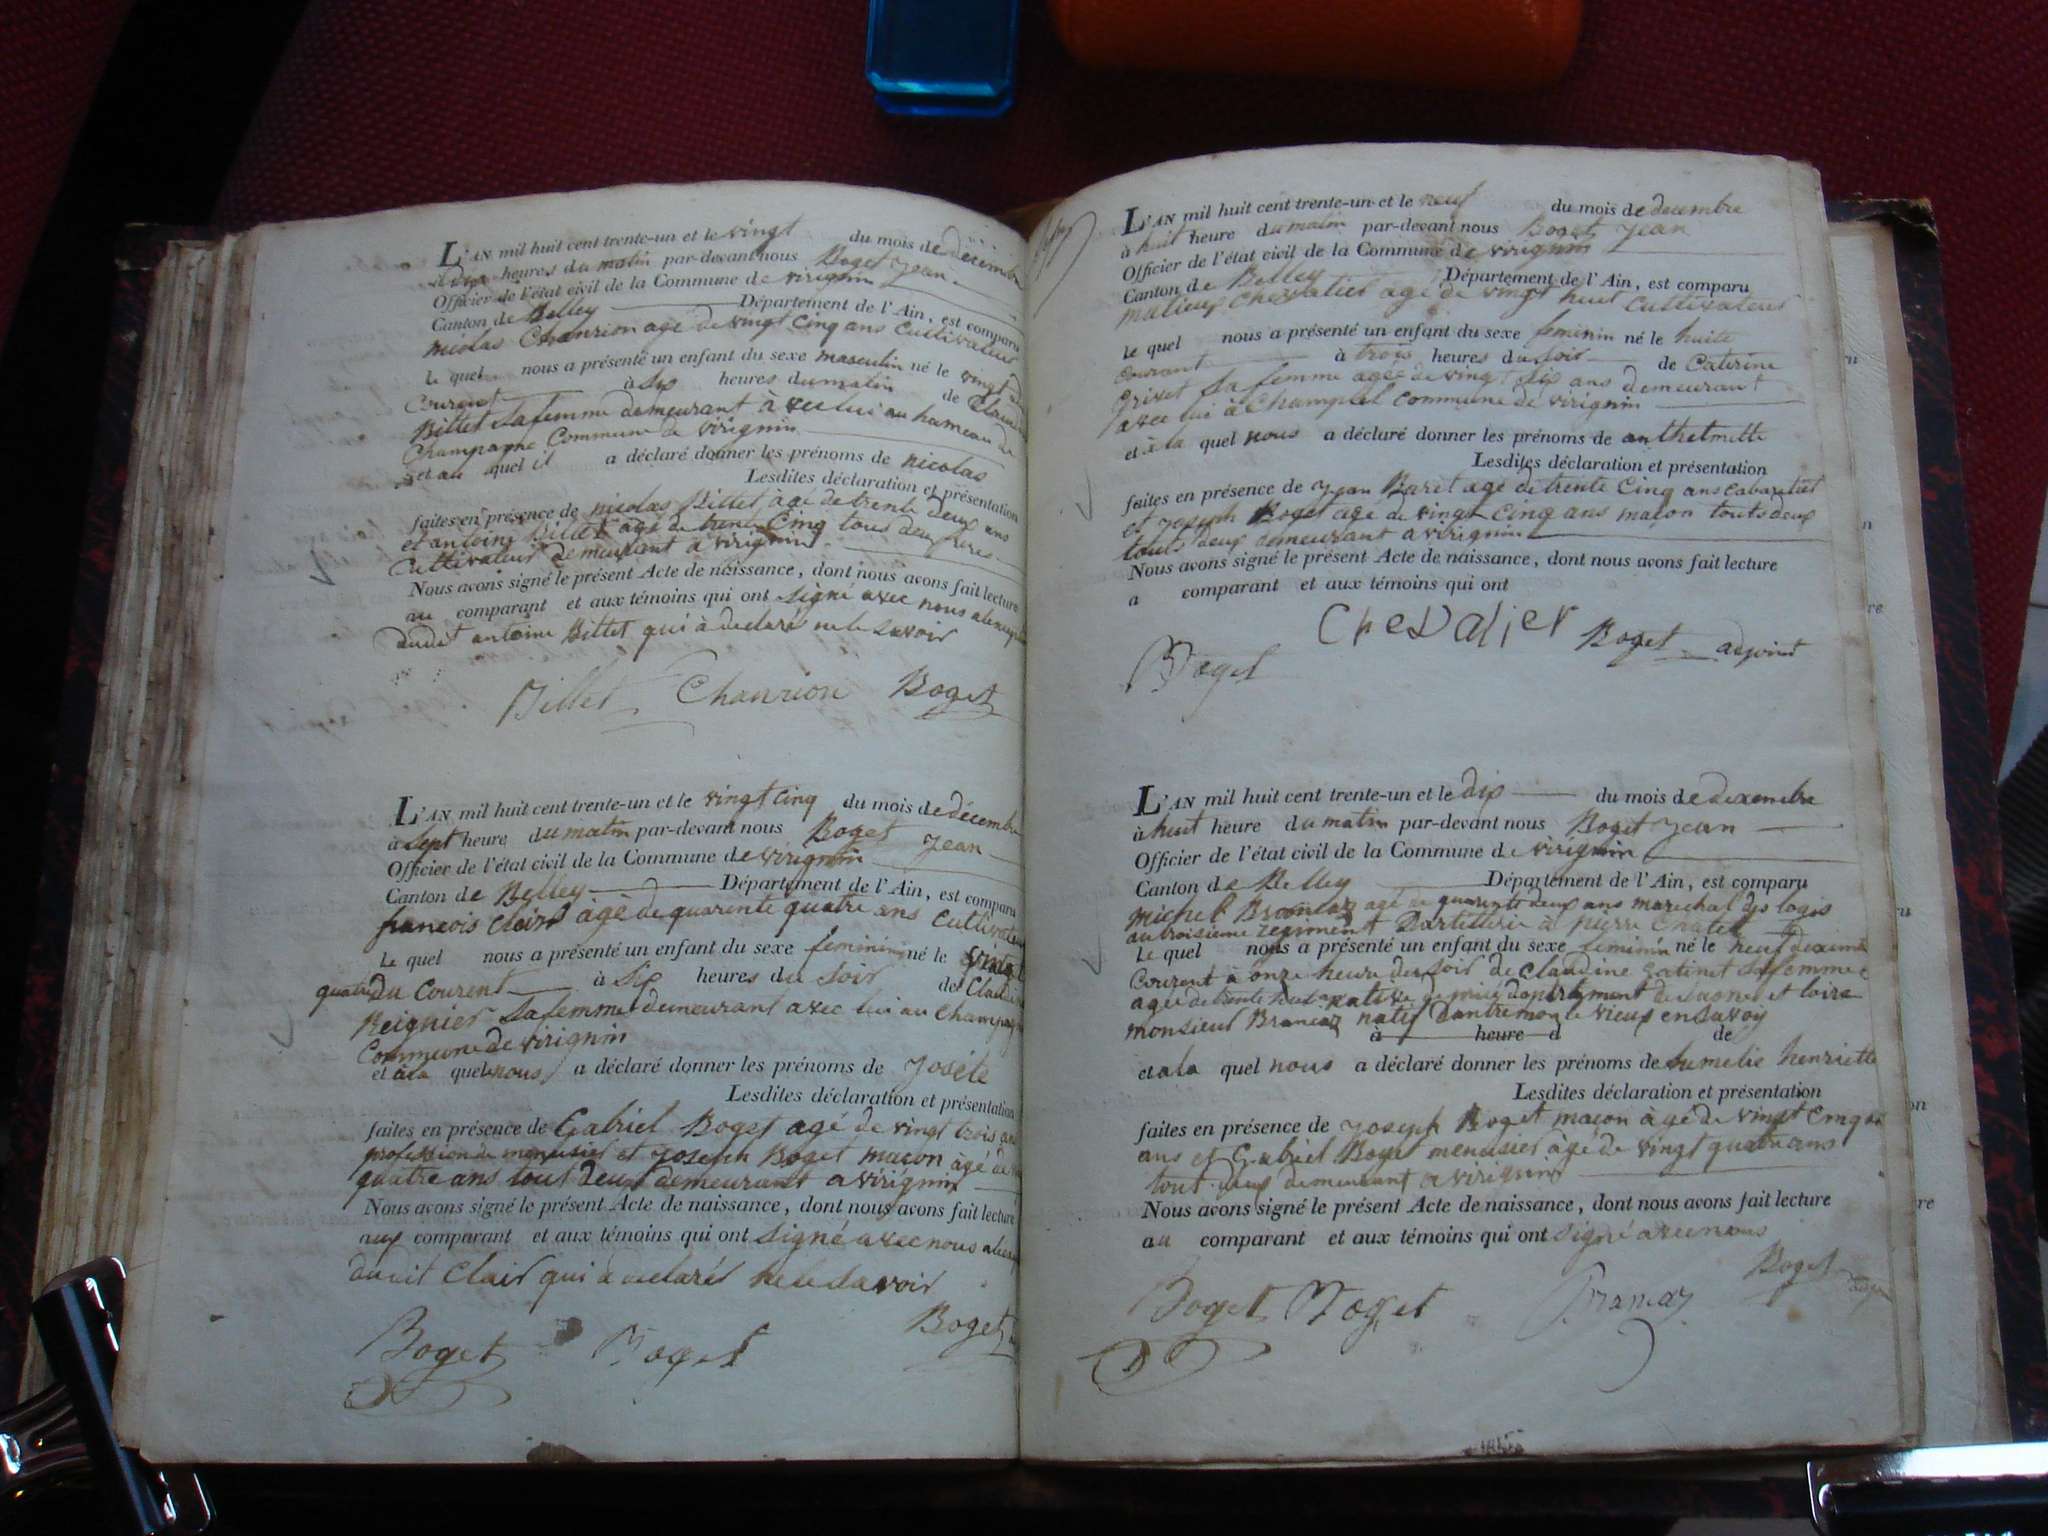 L'AN mil huit cent trente-un et le vingt du mois de décembre
à heures du matin par-devant nous Boget Jean
Officier de l'état civil de la Commune de virignin
Canton de Belley Département de l'Ain, est comparu
nicolas Chanrion agé de vingt cinq ans Cultivateur
Le quel nous a présenté un enfant du sexe masculin né le vingt du
Courent à six heures du matin de Claudine
Billet sa femme demeurant à vec lui au hameau de
Champagne Commune de virignin
et au quel il a déclaré donner les prénoms de nicolas
Lesdites déclaration et présentation
faites en présence de nicolas Billet agé de trente deux ans
et antoine Billet agé de trente Cinq tous deux freres
Cultivateur demeurant a virignin
Nous avons signé le présent Acte de naissance, dont nous avons fait lecture
au comparant et aux témoins qui ont signé avec nous
dudit antoine Billet qui à declaré ne le savoir
Billet Chanrion Boget
L'AN mil huit cent trente-un et le vingt cinq du mois de décembre
à sept heure du matin par-devant nous Boget Jean
Officier de l'état civil de la Commune de virignin
Canton de Belley Département de l'Ain, est comparu
francois Clair àgé de quarente quatre ans Cultivateur
Le quel nous a présenté un enfant du sexe feminin né le vingt
quatre du Courent à six heures du soir de Claudine
Reignier sa femme demeurant avec lui au Champagne
Commune de virignin
et à la quel nous a déclaré donner les prénoms de Joséte
Lesdites déclaration et présentation
faites en présence de Gabriel Boget agé de vingt trois ans
profession de menusier et Joseph Boget maçon àgé de
quatre ans tout deux demeurant a virignin
Nous avons signé le présent Acte de naissance, dont nous avons fait lecture
aux comparant et aux témoins qui ont signé avec nous
dudit Clair qui à declaré ne le savoir
Boget Boget Boget
L'AN mil huit cent trente-un et le neuf du mois de decembre
à huit heure du matin par-devant nous Boget Jean
Officier de l'état civil de la Commune de virignin
Canton de Belley Département de l'Ain, est comparu
matieux Chevalier agé de vingt huit Cultivateur
Le quel nous a présenté un enfant du sexe feminin né le huite
Courant à trois heures du soir de Caterine
Grivet sa femme agée de vingt six ans demeurant
avec lui à Champtel Commune de virignin
et à la quel nous a déclaré donner les prénoms de anthelmette
Lesdites déclaration et présentation
faites en présence de Jean Baret agé de trente Cinq ans Cabaretier
et Joseph Boget agé de vingt Cinq ans maçon touts deux
touts deux demeurant a virignin
Nous avons signé le présent Acte de naissance, dont nous avons fait lecture
a comparant et aux témoins qui ont
Chevalier Boget adjoint
Boget
L'AN mil huit cent trente-un et le dix du mois de decembre
à huit heure du matin par-devant nous Boget Jean
Officier de l'état civil de la Commune de virignin
Canton de Belley Département de l'Ain, est comparu
michel Brancaz agé de quarente deux ans marechal des logis
au troisieme regiment Dartillerie à pierre Chatel
Le quel nous a présenté un enfant du sexe feminin né le neuf
Courent à onze heure du soir de Claudine Gatinet sa femme
agée de trente native de departement de saone et loire
monsieur Brancaz natif dantremont le vieux en savoy
à heure d de
et a la quel nous a déclaré donner les prénoms de humelie henriette
Lesdites déclaration et présentation
faites en présence de Joseph Boget maçon àgé de vingt Cinq
ans et Gabriel Boget menusier àgé de vingt quatre ans
tout deux demeurant a virignin
Nous avons signé le présent Acte de naissance, dont nous avons fait lecture
au comparant et aux témoins qui ont signé avec nous
Boget Boget Brancaz Boget